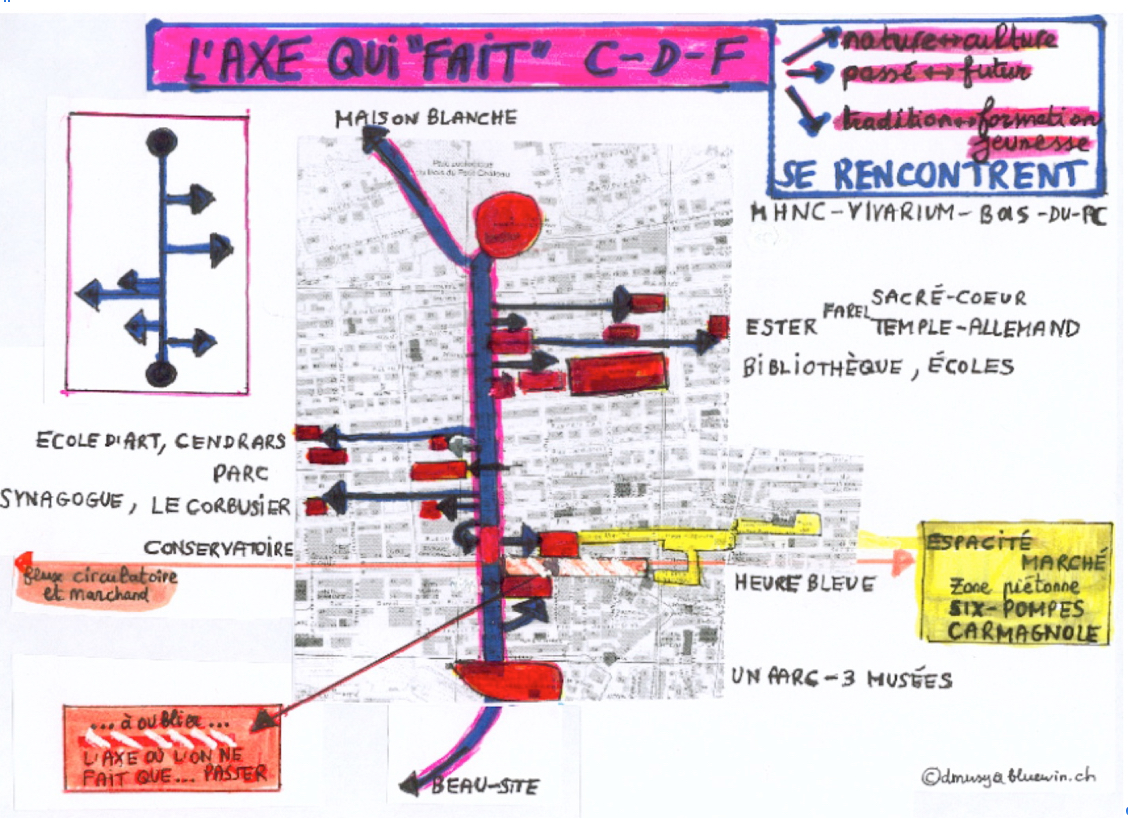 L'AXE QUI "FAIT" C-D-F
nature↔culture
passé ↔ futur
tradition↔formation
jeunesse
SE RENCONTRENT
MAISON BLANCHE
MHNC-VIVARIUM-BOIS-DU-PC
SACRÉ-COEUR
ESTER FAREL TEMPLE-ALLEMAND
BIBLIOTHÈQUE, ÉCOLES
ECOLE D'ART, CENDRARS
PARC
SYNAGOGUE, LE CORBUSIER
CONSERVATOIRE
flux circulatoire
et marchand
HEURE BLEUE
ESPACITÉ
MARCHÉ
Zone piétonne
SIX-POMPES
CARMAGNOLE
UN PARC-3 MUSÉES
...à oublier...
L'AXE OÙ L'ON NE
FAIT QUE... PASSER
BEAU-SITE
©dmusy@bluewin.ch